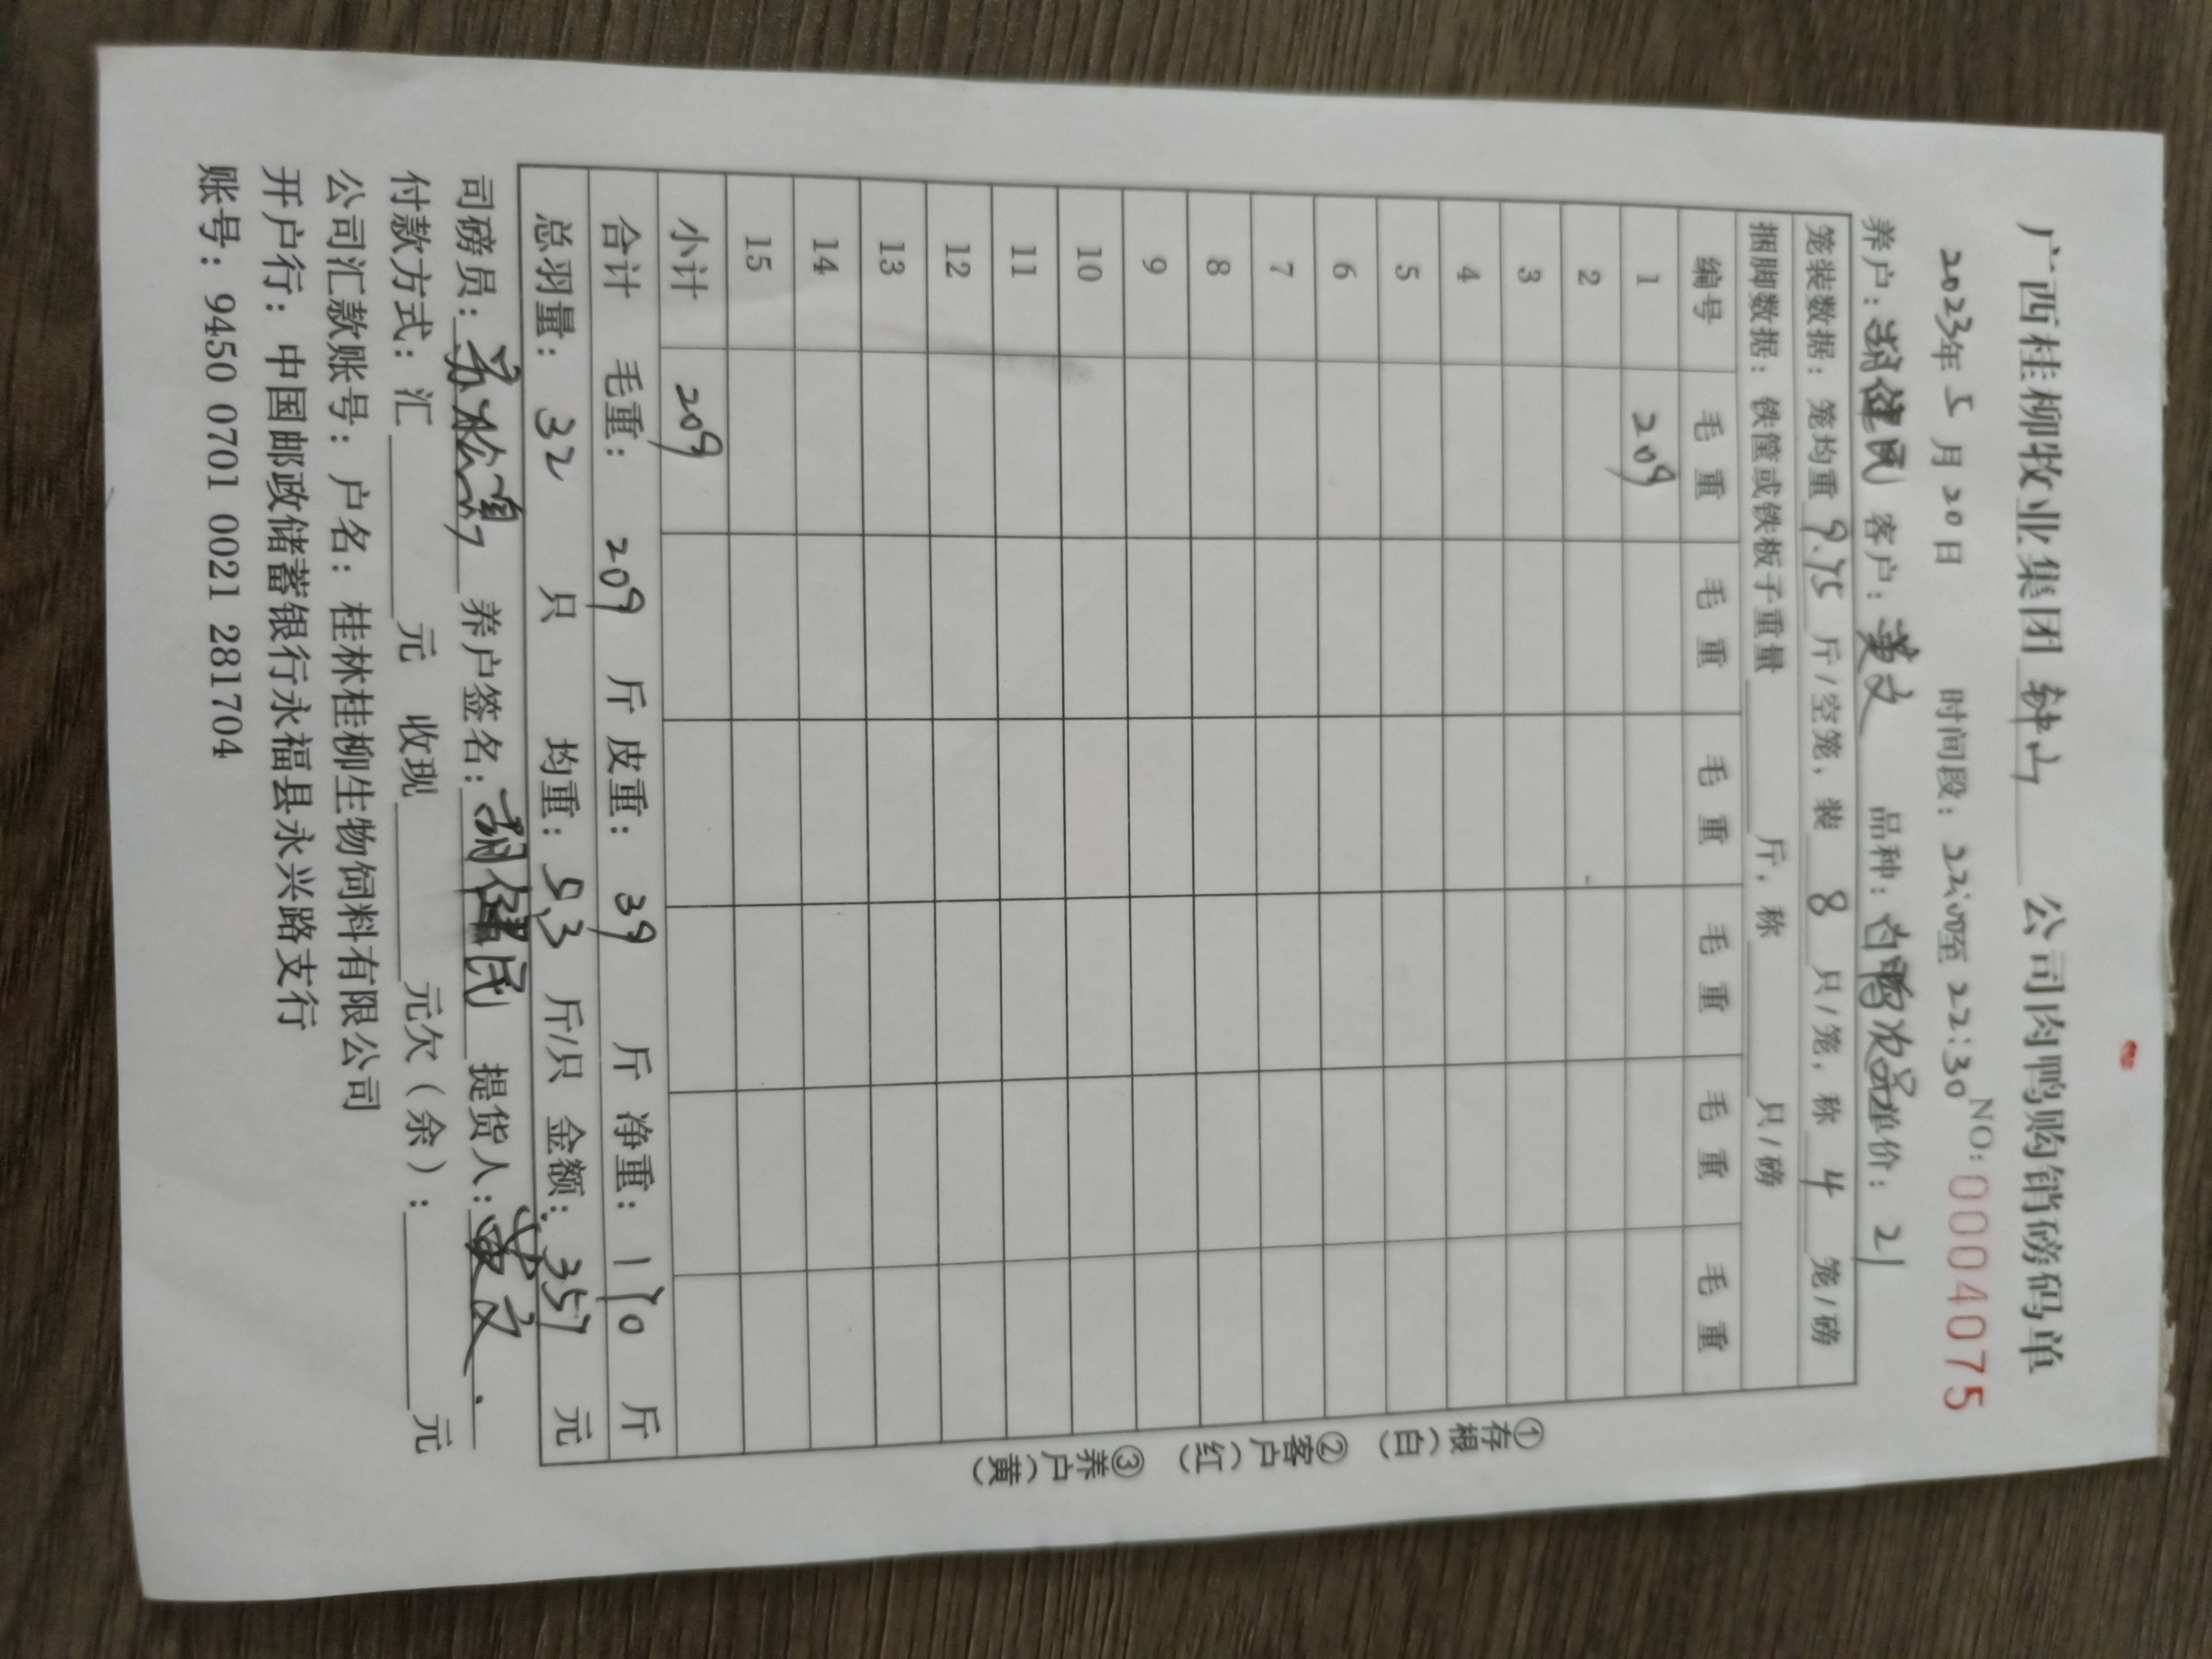 广西桂柳牧业集团 钟山 公司肉鸭购销磅码单
2023年 5 月 20 日 时间段: 22:00至 22:30 NO: 0004075
养户: 胡健民 客户: 黄文 品种: 白鸭次品 单价: 21
笼装数据: 笼均重 9.75 斤/空笼, 装 8 只/笼, 称 4 笼/磅
捆脚数据: 铁筐或铁板子重量 斤, 称 只/磅
编号 毛 重 毛 重 毛 重 毛 重 毛 重 毛 重
1 209
2
3
4
5
6
7
8
9
10
11
12
13
14
15
小计 209
合计 毛重: 209 斤 皮重: 39 斤 净重: 170 斤
总羽量: 32 只 均重: 5.3 斤/只 金额: 357 元
司磅员: 养户签名: 胡健民 提货人: 黄文
付款方式: 汇 元 收现 元欠(余): 元
公司汇款账号: 户名: 桂林桂柳生物饲料有限公司
开户行: 中国邮政储蓄银行永福县永兴路支行
账号: 9450 0701 0021 281704
①存根(白) ②客户(红) ③养户(黄)